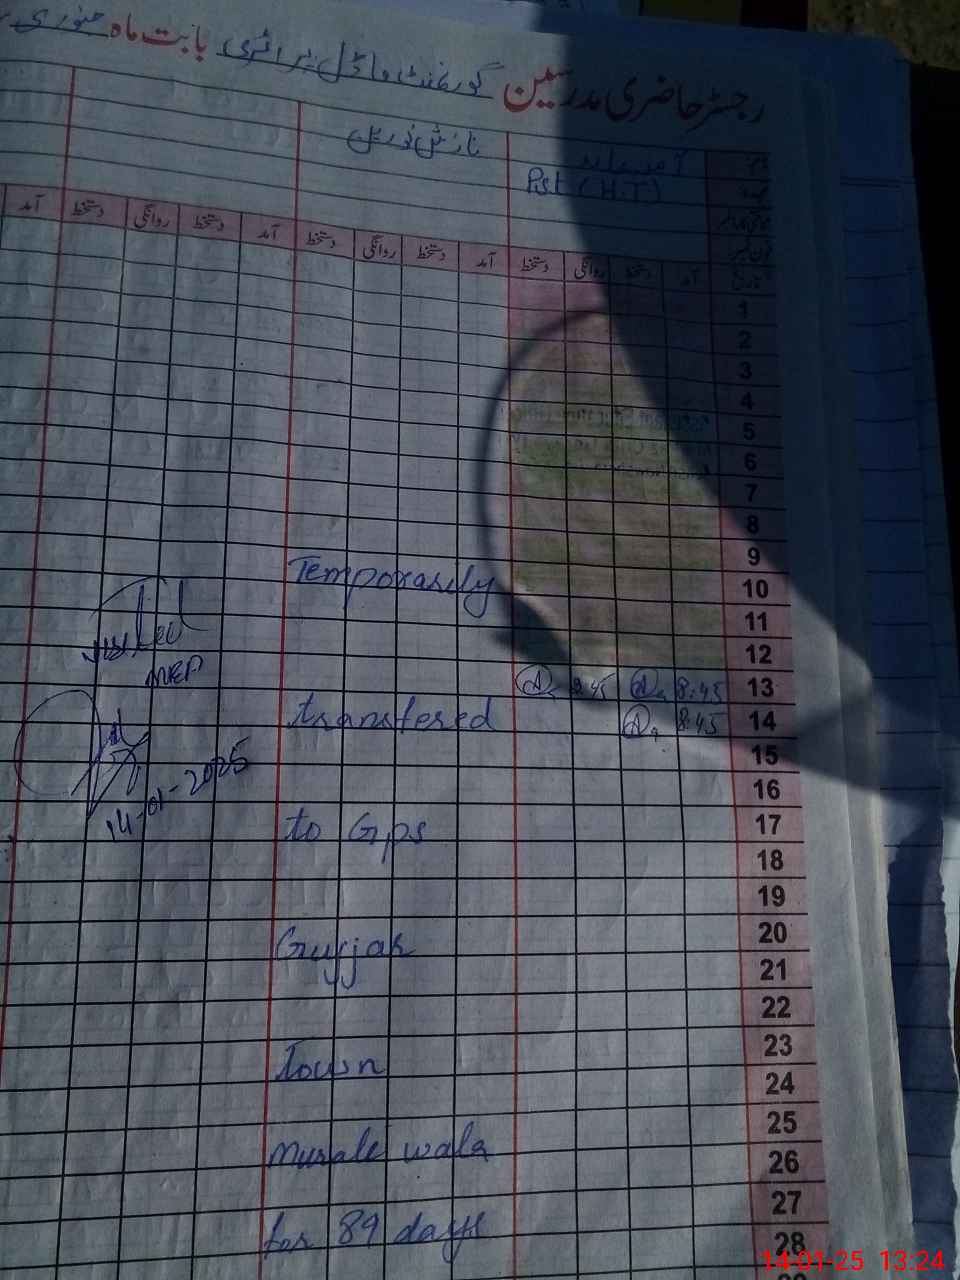 رجسٹر حاضری مدرسین گورنمنٹ ماڈل پرائمری بابت ماہ جنوری
نام
عہدہ
Pst (H.T)
فون نمبر
تاریخ آمد دستخط روانگی دستخط آمد دستخط روانگی دستخط آمد دستخط روانگی دستخط آمد
1
2
3
4
5
6
7
8
9
Temporarily
10
11
12
13 8:45 3:45
transfered
14 8:45
15
16
to Gps
17
18
19
Gujjar
20
21
22
Town
23
24
25
Murale wala
26
27
for 89 days
28
visited
MEA
14-01-2025
14-01-25 13:24